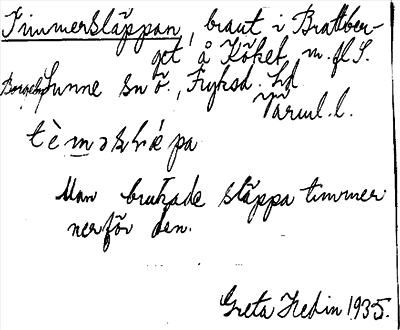 Timmersläppan, brant i Brattber-
get å Köket, m. fl. S.
Borgeby Sunne sn ö., Fryksd. hd
Värml. l.
tèməsläpa
Man brukade släppa timmer
nerför den.
Greta Hedin 1935.